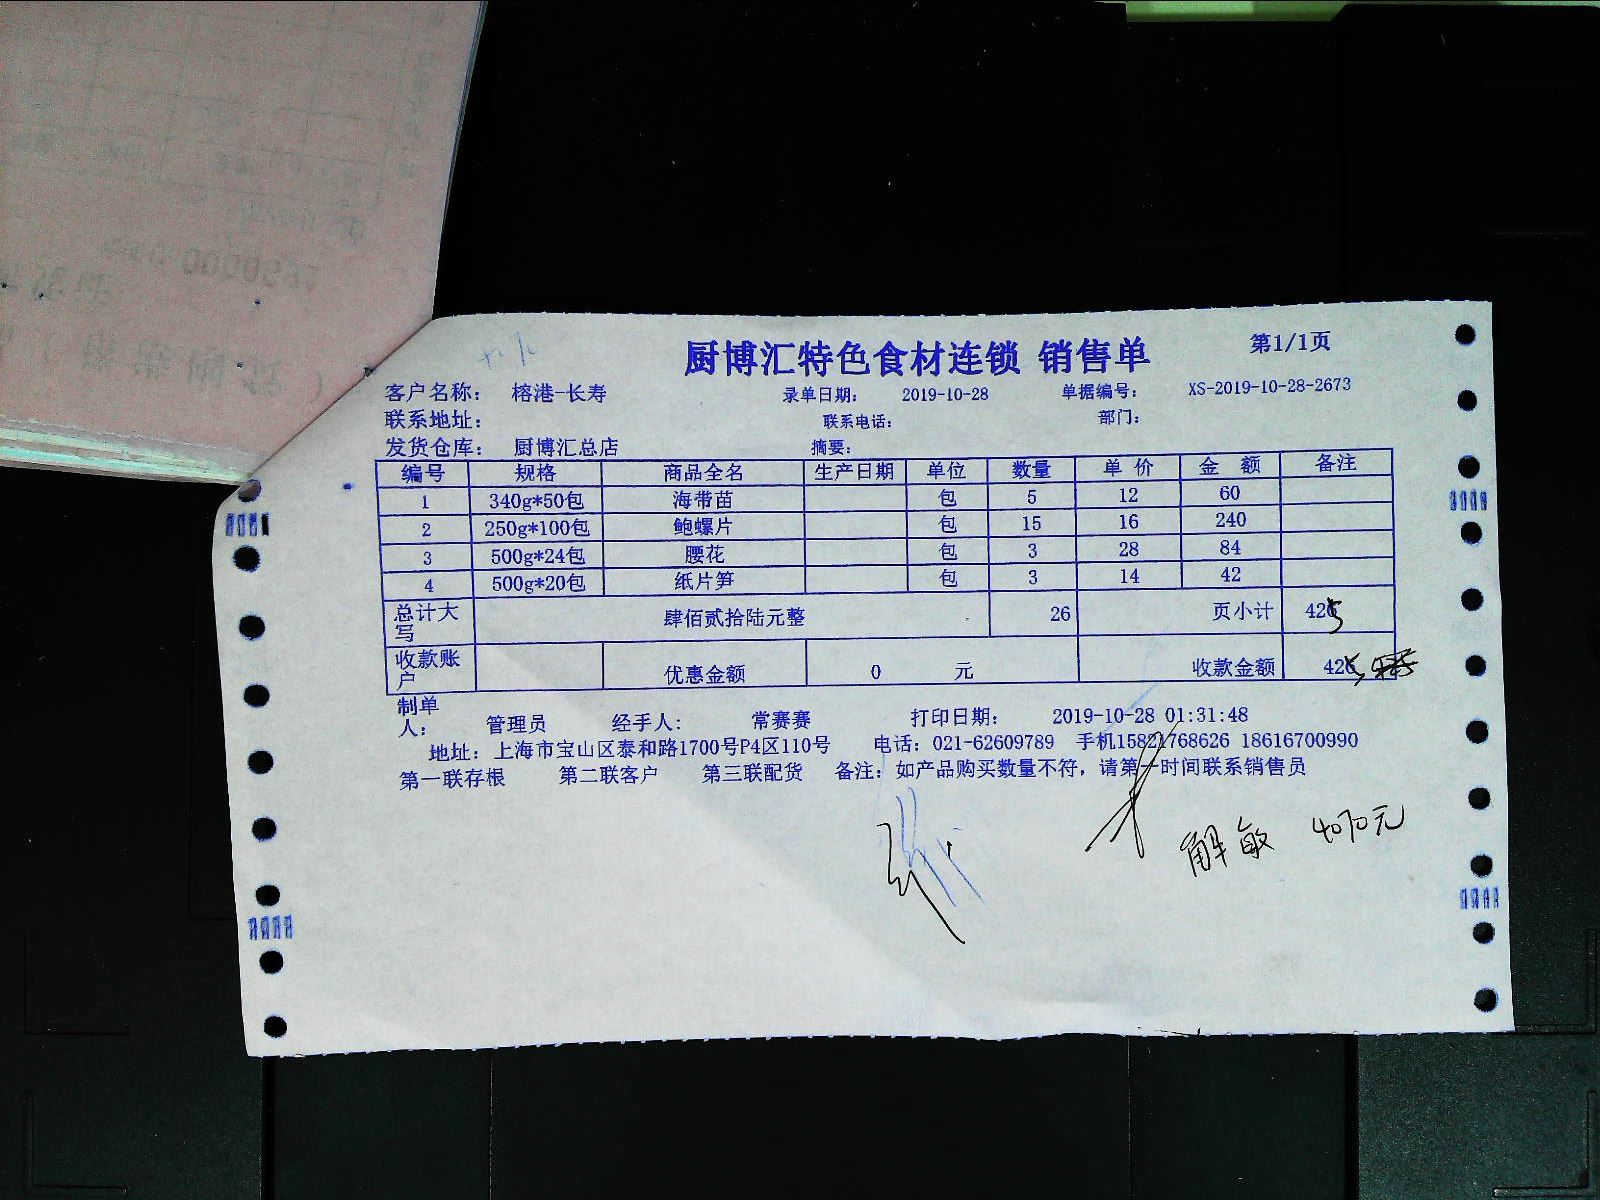 厨博汇特色食材连锁 销售单 第1/1页
客户名称： 榕港-长寿 录单日期： 2019-10-28 单据编号： XS-2019-10-28-2673
联系地址： 联系电话： 部门：
发货仓库： 厨博汇总店 摘要：
编号 规格 商品全名 生产日期 单位 数量 单 价 金 额 备注
1 340g*50包 海带苗 包 5 12 60
2 250g*100包 鲍螺片 包 15 16 240
3 500g*24包 腰花 包 3 28 84
4 500g*20包 纸片笋 包 3 14 42
总计大写 肆佰贰拾陆元整 26 页小计 425
收款账户 优惠金额 0 元 收款金额 425
制单人： 管理员 经手人： 常赛赛 打印日期： 2019-10-28 01:31:48
地址：上海市宝山区泰和路1700号P4区110号 电话：021-62609789 手机15821768626 18616700990
第一联存根 第二联客户 第三联配货 备注：如产品购买数量不符，请第一时间联系销售员
解敏 4070元